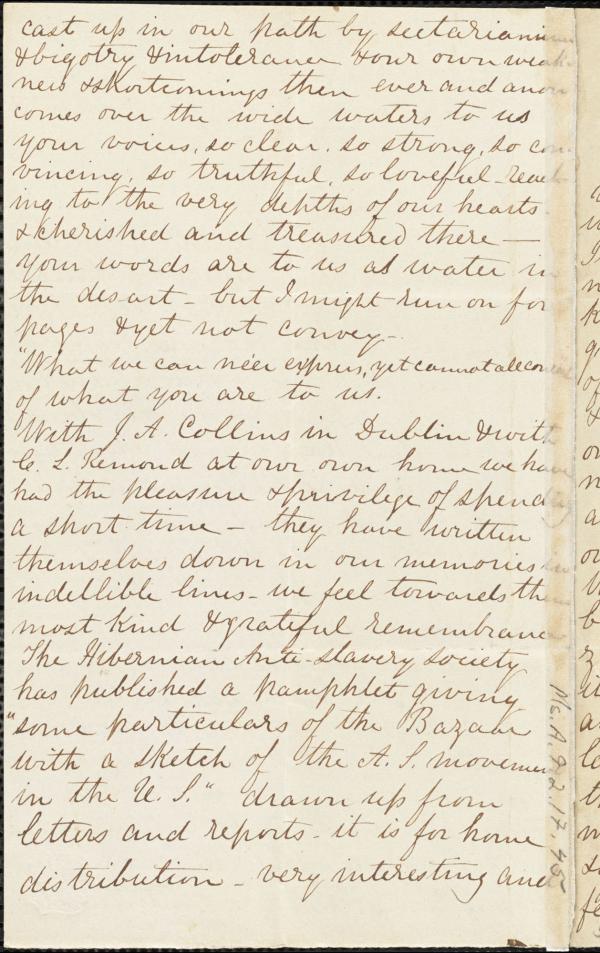 cast up in our path by sectarianism
& bigotry & intolerance & our own weak
ness & shortcomings then ever and anon
comes over the wide waters to us
your voices, so clear, so strong, so con
vincing, so truthful, so loveful - reach
ing to the very depths of our hearts
& cherished and treasured there —
your words are to us as water in
the desart - but I might run on for
pages & yet not convey -
"What we can ne'er express, yet cannot all conceal
of what you are to us.
With J. A. Collins in Dublin & with
C. L. Remond at our own home we have
had the pleasure & privilege of spending
a short time - they have written
themselves down in our memories in
indellible lines - we feel towards them
most kind & grateful remembrance
The Hibernian Anti-slavery society
has published a pamphlet giving
"some particulars of the Bazaar
with a sketch of the A. S. movement
in the U. S." drawn up from
letters and reports - it is for home
distribution - very interesting and
Ms. A. 9.2.14.45